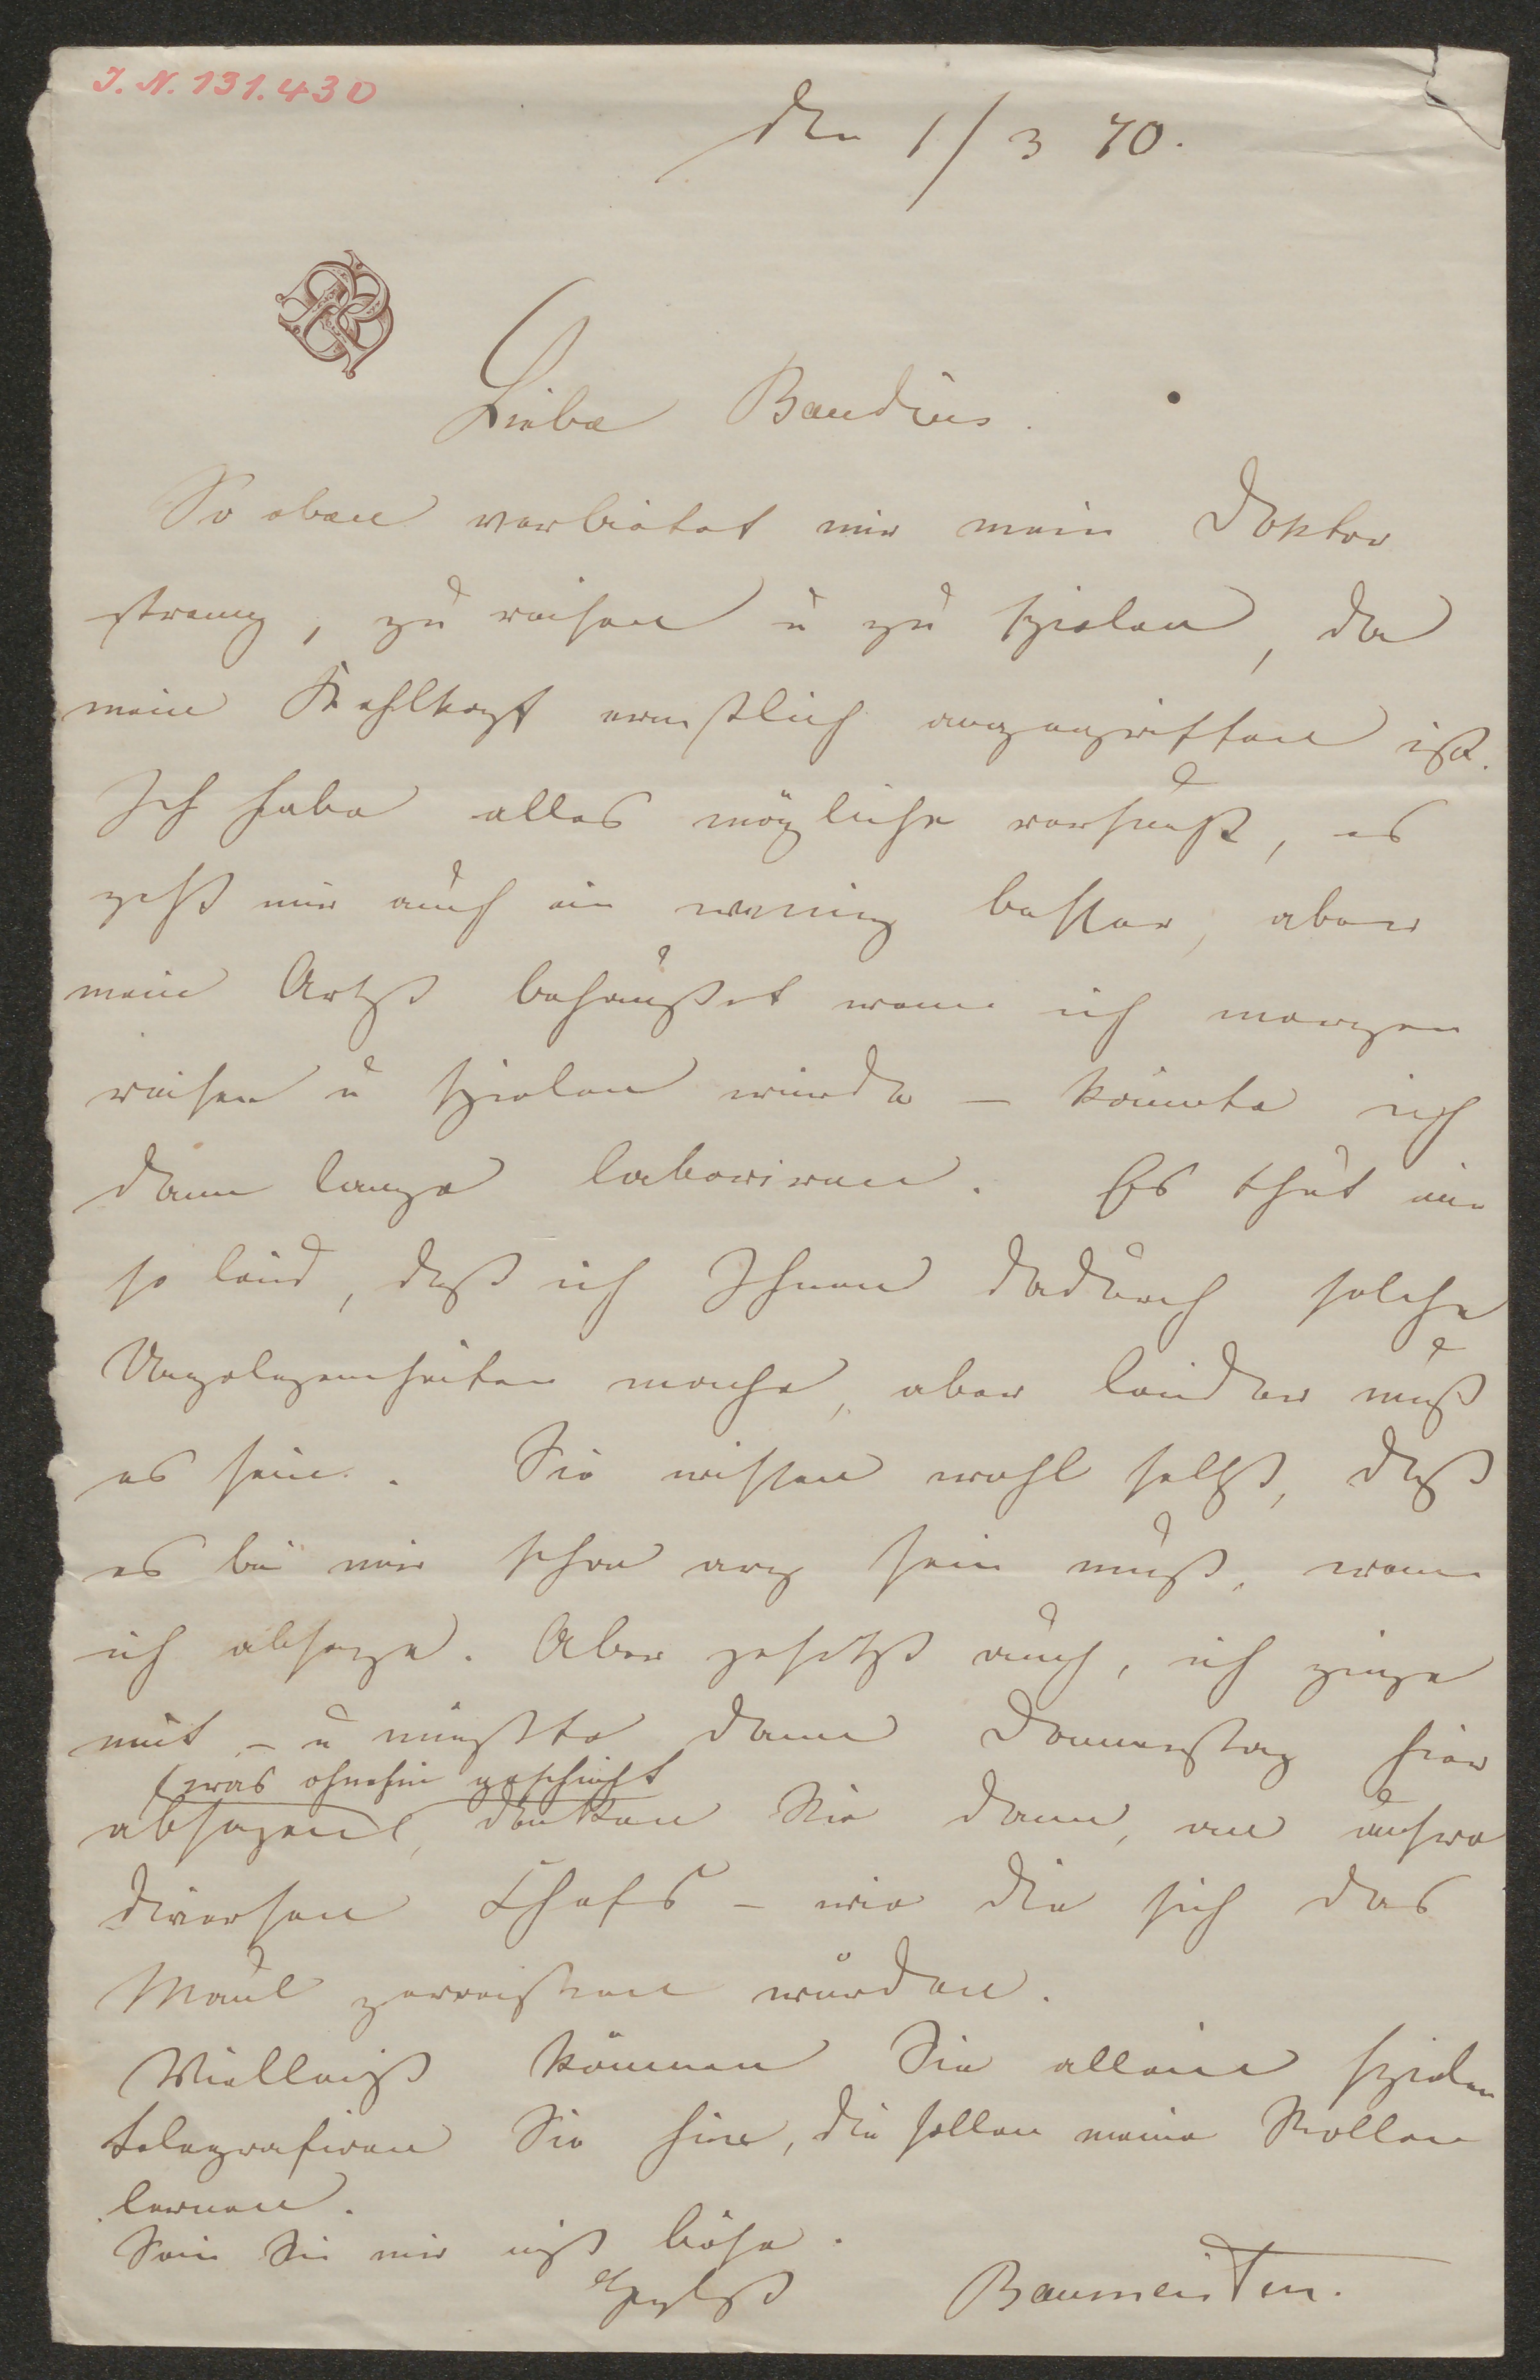 I. N. 131.430
den 1/3 70.
Liebe Baudius.
So eben verbietet mir mein Doktor
streng, zu reisen u zu spielen, da
mein Kehlkopf ernstlich angegriffen ist.
Ich habe alles mögliche versucht, es
geht mir auch ein wenig besser, aber
mein Artzt behauptet wenn ich morgen
reisen u spielen würde – könnte ich
dann lange laboriren. Es thut mir
so leid, daß ich Ihnen dadurch solche
Ungelegenheiten mache, aber leider muß
es sein. Sie wissen wohl selbst, daß
es bei mir schon arg sein muß, wenn
ich absage. Aber gesetzt auch, ich ginge
mit – u müßte dann Donnerstag hier
(was ohnehin geschieht
absagen), denken Sie dann, an unsre
diversen Chefs – wie die sich das
Maul zerreißen würden.
Vielleicht können Sie allein spielen
telegrafiren Sie hin, die sollen meine Rollen
lernen.
Sein Sie mir nicht böse.
Baumeister.